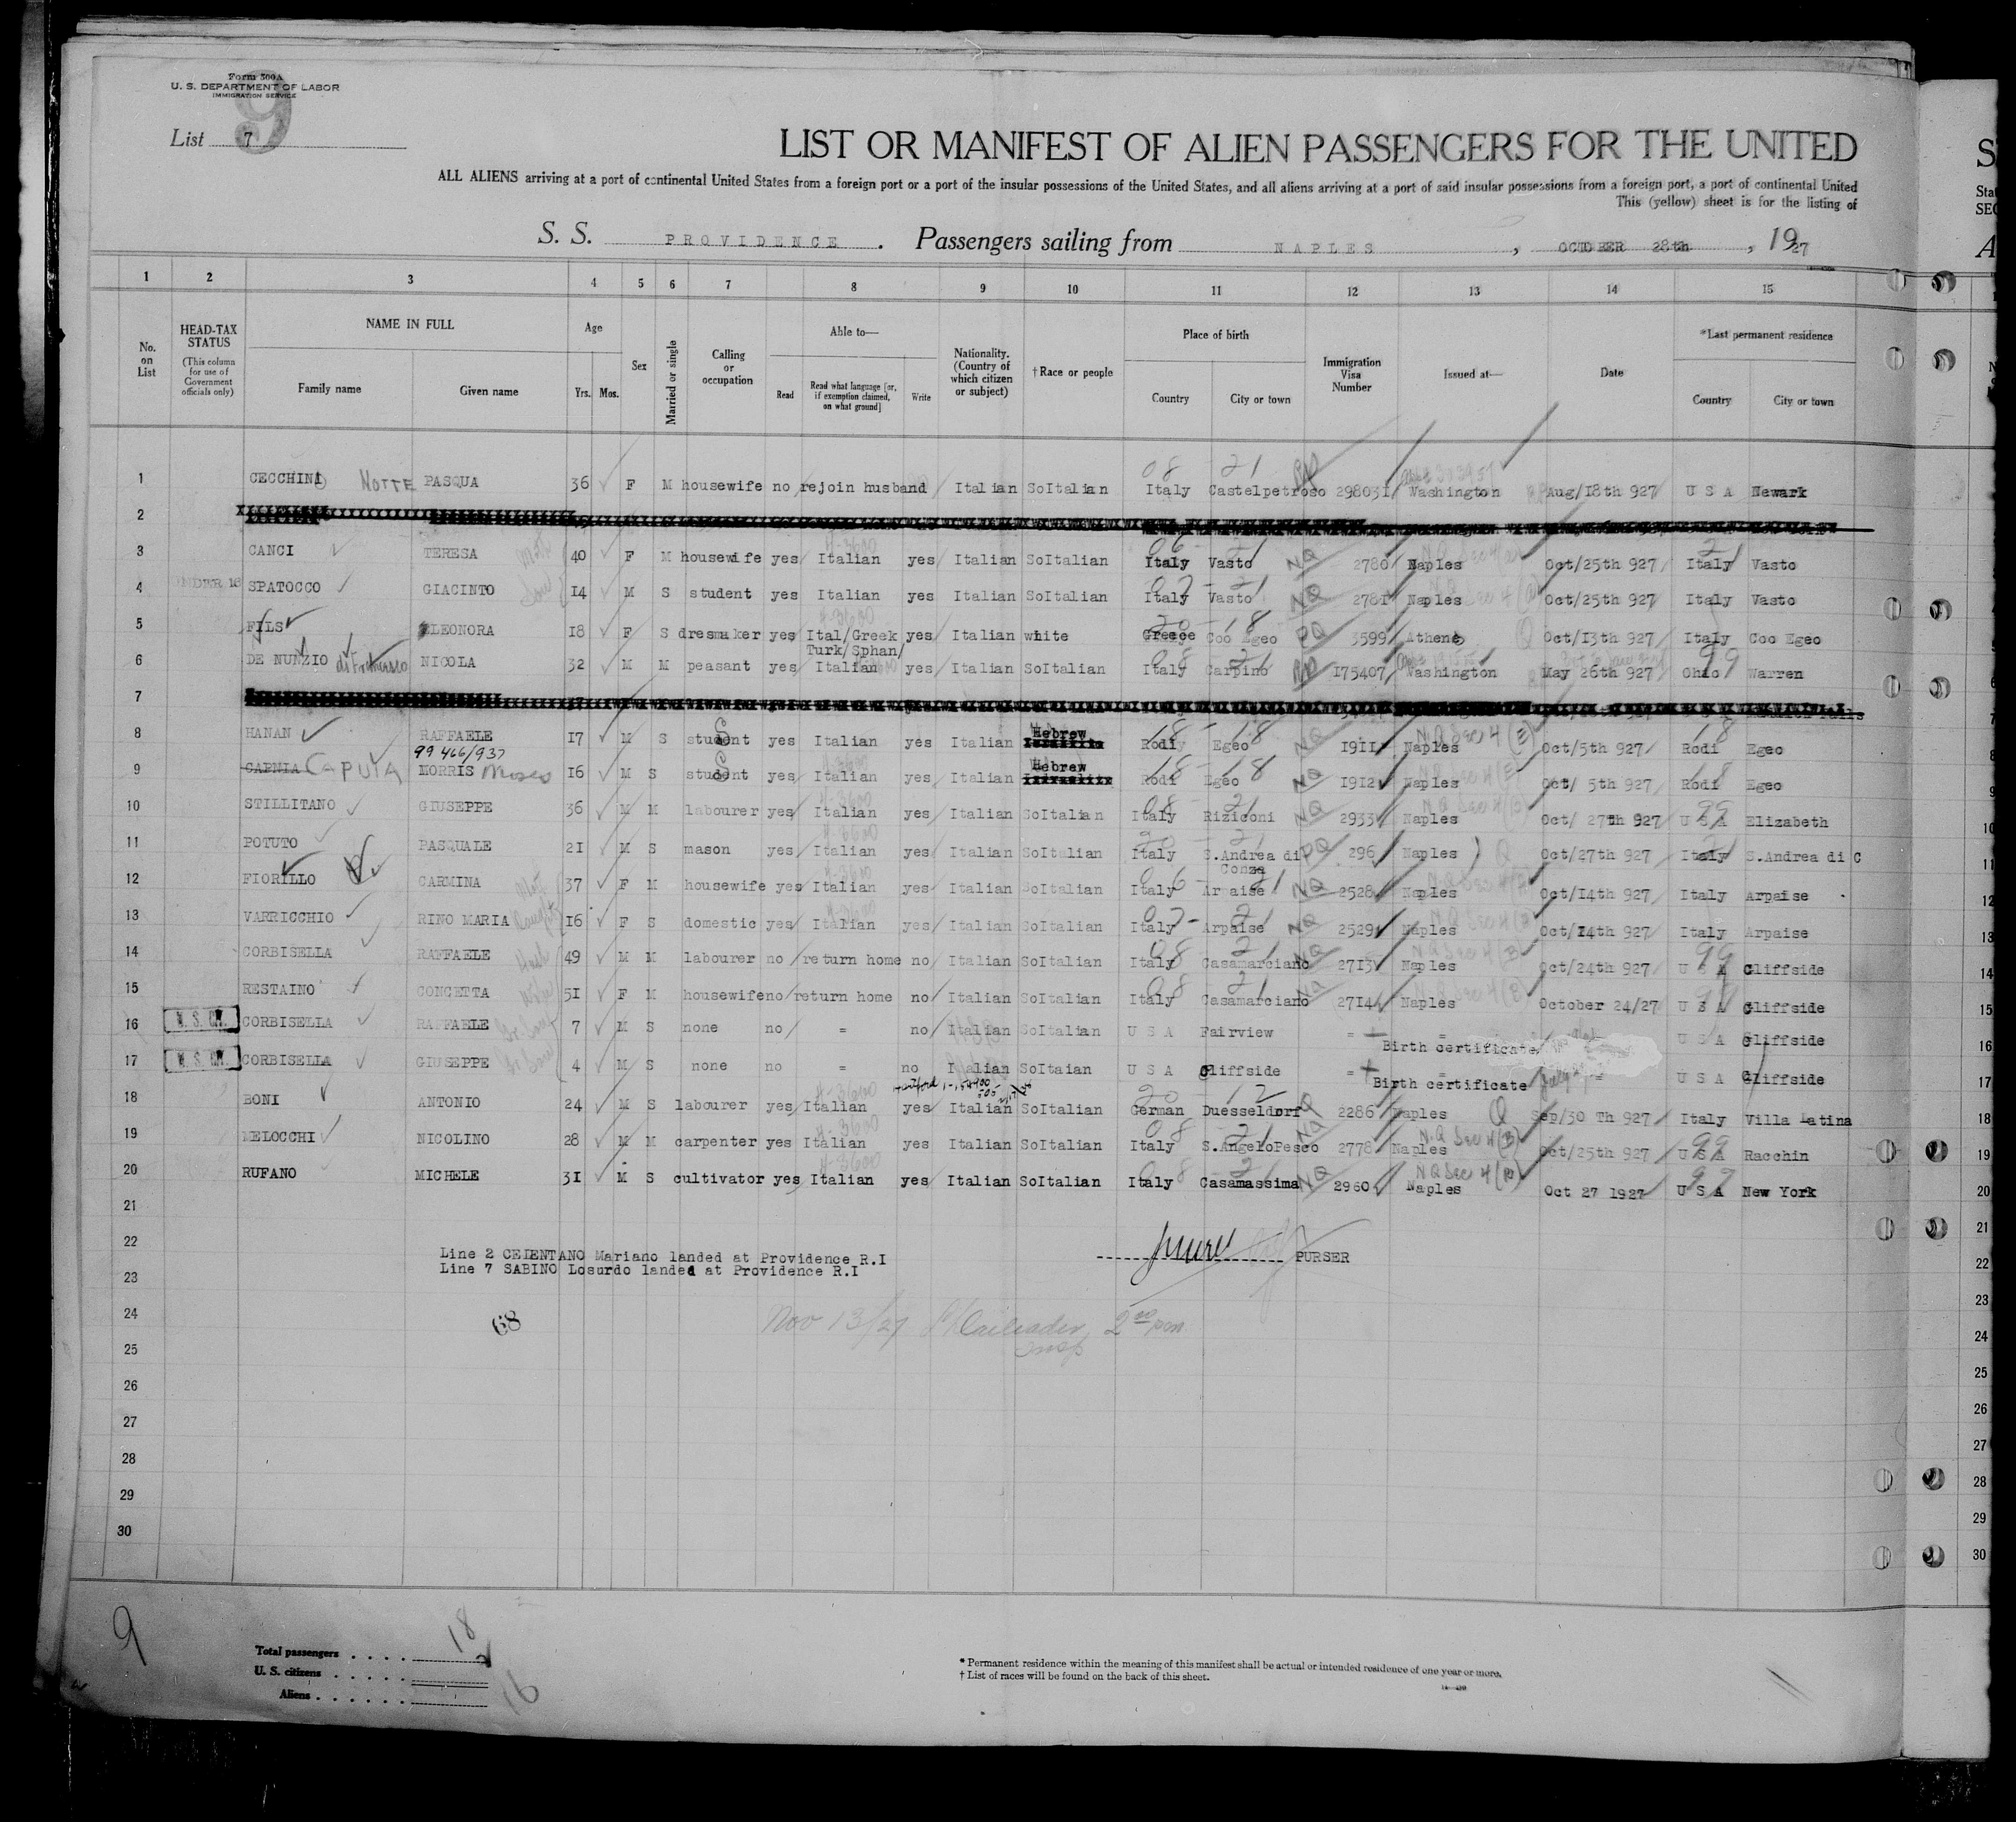 Form 500A
U. S. DEPARTMENT OF LABOR
IMMIGRATION SERVICE
9
List 7
LIST OR MANIFEST OF ALIEN PASSENGERS FOR THE UNITED
ALL ALIENS arriving at a port of continental United States from a foreign port or a port of the insular possessions of the United States, and all aliens arriving at a port of said insular possessions from a foreign port, a port of continental United
This (yellow) sheet is for the listing of
S. S. PROVIDENCE . Passengers sailing from NAPLES , OCTOBER 28th , 1927
1 2 3 4 5 6 7 8 9 10 11 12 13 14 15
No. on List
HEAD-TAX STATUS
(This column for use of Government officials only)
NAME IN FULL
Family name Given name
Age
Yrs. Mos.
Sex
Married or single
Calling or occupation
Able to—
Read Read what language [or, if exemption claimed, on what ground] Write
Nationality. (Country of which citizen or subject)
†Race or people
Place of birth
Country City or town
Immigration Visa Number
Issued at—
Date
*Last permanent residence
Country City or town
1 CECCHINI NOTTE PASQUA 36 F M housewife no rejoin husband Italian SoItalian Italy Castelpetroso 298031 Washington Aug/18th 927 U S A Newark
2
3 CANCI TERESA 40 F M housewife yes Italian yes Italian SoItalian Italy Vasto NQ 2780 Naples Oct/25th 927 Italy Vasto
4 UNDER 16 SPATOCCO GIACINTO 14 M S student yes Italian yes Italian SoItalian Italy Vasto NQ 2781 Naples Oct/25th 927 Italy Vasto
5 FILS ELEONORA 18 F S dresmaker yes Ital/Greek yes Italian white Greece Coo Egeo PQ 3599 Athene Oct/13th 927 Italy Coo Egeo
Turk/Sphan/
6 DE NUNZIO NICOLA 32 M M peasant yes Italian yes Italian SoItalian Italy Carpino 175407 Washington May 26th 927 Ohio Warren
7
8 HANAN RAFFAELE 17 M S student yes Italian yes Italian Hebrew Rodi Egeo NQ 1911 Naples Oct/5th 927 Rodi Egeo
99 466/937
9 CAPNIA CAPUIA MORRIS Moses 16 M S student yes Italian yes Italian Hebrew Rodi Egeo NQ 1912 Naples Oct/ 5th 927 Rodi Egeo
10 STILLITANO GIUSEPPE 36 M M labourer yes Italian yes Italian SoItalian Italy Riziconi NQ 2933 Naples Oct/ 27th 927 U S A Elizabeth
11 POTUTO PASQUALE 21 M S mason yes Italian yes Italian SoItalian Italy S.Andrea di PQ 296 Naples Oct/27th 927 Italy S.Andrea di C
Conza
12 FIORILLO CARMINA 37 F M housewife yes Italian yes Italian SoItalian Italy Arpaise NQ 2528 Naples Oct/14th 927 Italy Arpaise
13 VARRICCHIO RINO MARIA 16 F S domestic yes Italian yes Italian SoItalian Italy Arpaise NQ 2529 Naples Oct/14th 927 Italy Arpaise
14 CORBISELLA RAFFAELE 49 M M labourer no return home no Italian SoItalian Italy Casamarciano NQ 2713 Naples Oct/24th 927 U S A Cliffside
15 RESTAINO CONCETTA 51 F M housewife no return home no Italian SoItalian Italy Casamarciano NQ 2714 Naples October 24/27 U S A Cliffside
16 CORBISELLA RAFFAELE 7 M S none no = no Italian SoItalian U S A Fairview = = Birth certificate U S A Cliffside
17 CORBISELLA GIUSEPPE 4 M S none no = no Italian SoItaian U S A Cliffside = Birth certificate = U S A Cliffside
18 BONI ANTONIO 24 M S labourer yes Italian yes Italian SoItalian German Duesseldorf 2286 Naples Q Sep/30 Th 927 Italy Villa Latina
19 MELOCCHI NICOLINO 28 M M carpenter yes Italian yes Italian SoItalian Italy S.AngeloPesco NQ 2778 Naples NQ Sec 4 (B) Oct/25th 927 U S A Racchin
20 RUFANO MICHELE 31 M S cultivator yes Italian yes Italian SoItalian Italy Casamassima NQ 2960 Naples NQ Sec 4 (B) Oct 27 1927 U S A New York
21
22
23
Line 2 CEIENTANO Mariano landed at Providence R.I
Line 7 SABINO Losurdo landed at Providence R.I
PURSER
24
68
Nov 13/27 2 00 pm
25
26
27
28
29
30
9
Total passengers . . . . 18
U. S. citizens . . . . . 2
Aliens . . . . . . 16
* Permanent residence within the meaning of this manifest shall be actual or intended residence of one year or more.
† List of races will be found on the back of this sheet.